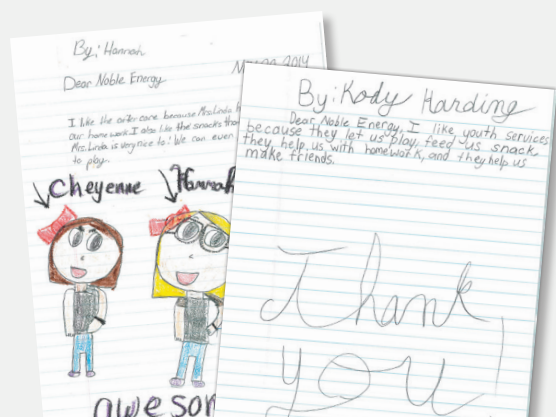 By: Hannah
2014
Dear Noble Energy
I like the because Mrs. Linda
our home work. I also like the snacks
Mrs. Linda is very nice to! We can even
to play.
Cheyenne
Hannah
awesor
By: Kody Harding
Dear Noble Energy, I like youth services
because they let us play, feed us snack
they help us with homework, and they help us
make friends.
Thank
you